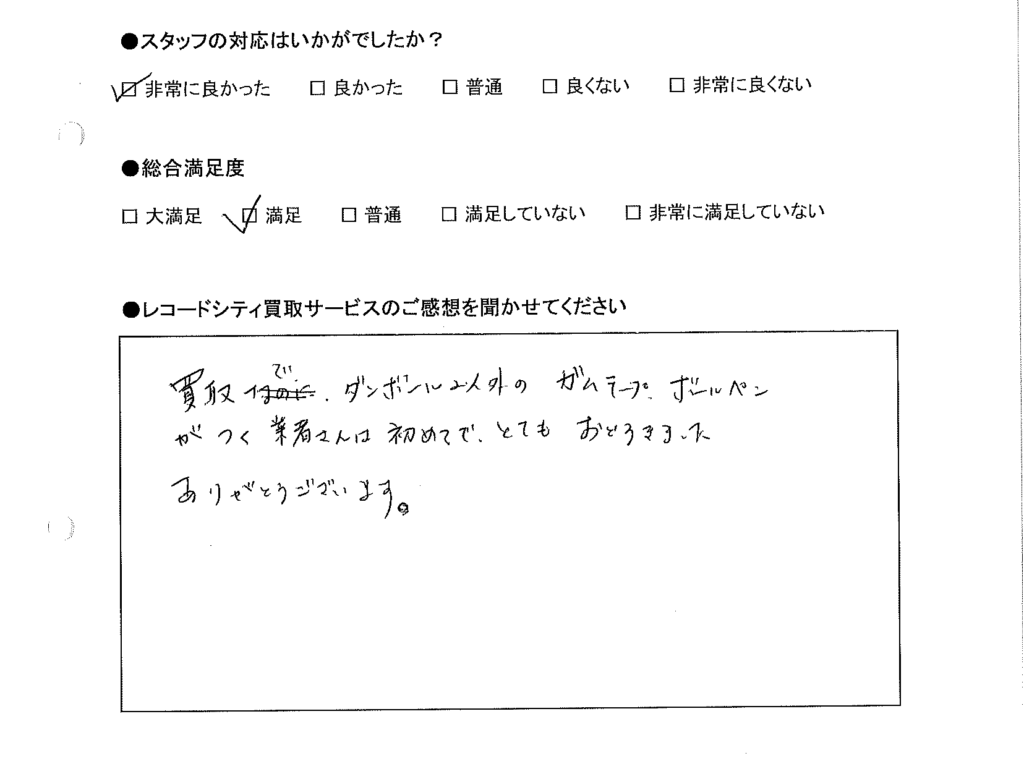 ●スタッフの対応はいかがでしたか？
☑ 非常に良かった　□ 良かった　□ 普通　□ 良くない　□ 非常に良くない
●総合満足度
□ 大満足　☑ 満足　□ 普通　□ 満足していない　□ 非常に満足していない
●レコードシティ買取サービスのご感想を聞かせてください
買取で、ダンボール以外の ガムテープ、ボールペン
がつく業者さんは初めてで、とても おどろきました
ありがとうございます。